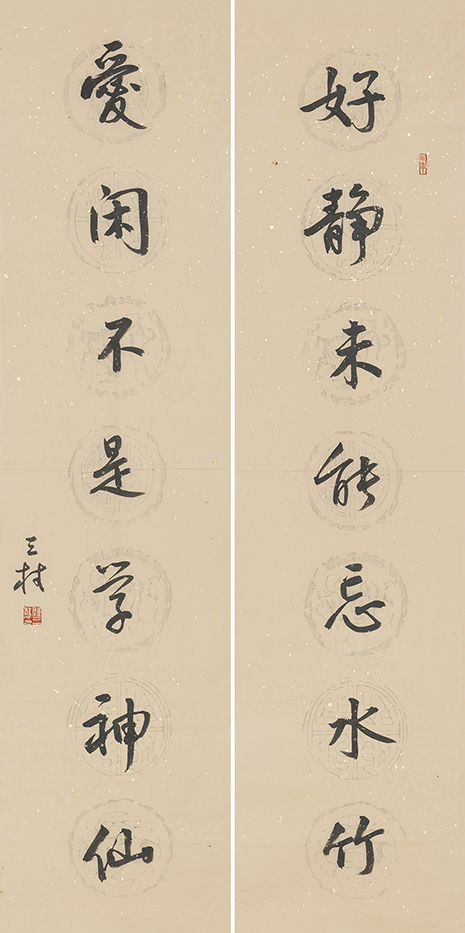 好静未能忘水竹
愛闲不是学神仙
三村